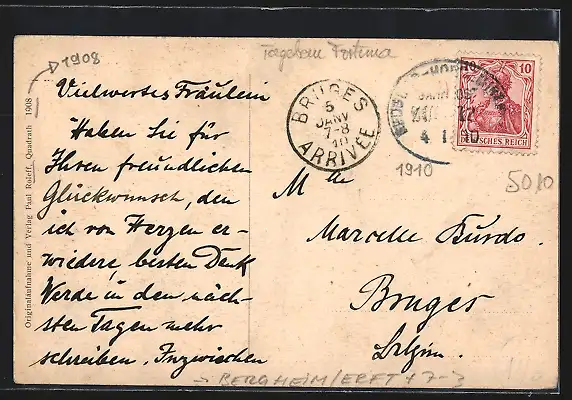 1908
Tagebau Fortuna
Vielwertes Fräulein
Haben Sie für
Ihren freundlichen
Glückwunsch, den
ich von Herzen er-
wiedere, besten Dank
Werde in den näch-
sten Tagen mehr
schreiben. Inzwischen
Originalaufnahme und Verlag Paul Roleff, Quadrath 1908
BRUGES
5
JANV
7-8
10
ARRIVÉE
10
DEUTSCHES REICH
4 1 10
1910
5010
Marcelle Burdo.
Bruges
Belgien.
→ BERGHEIM/ERFT + 7-3